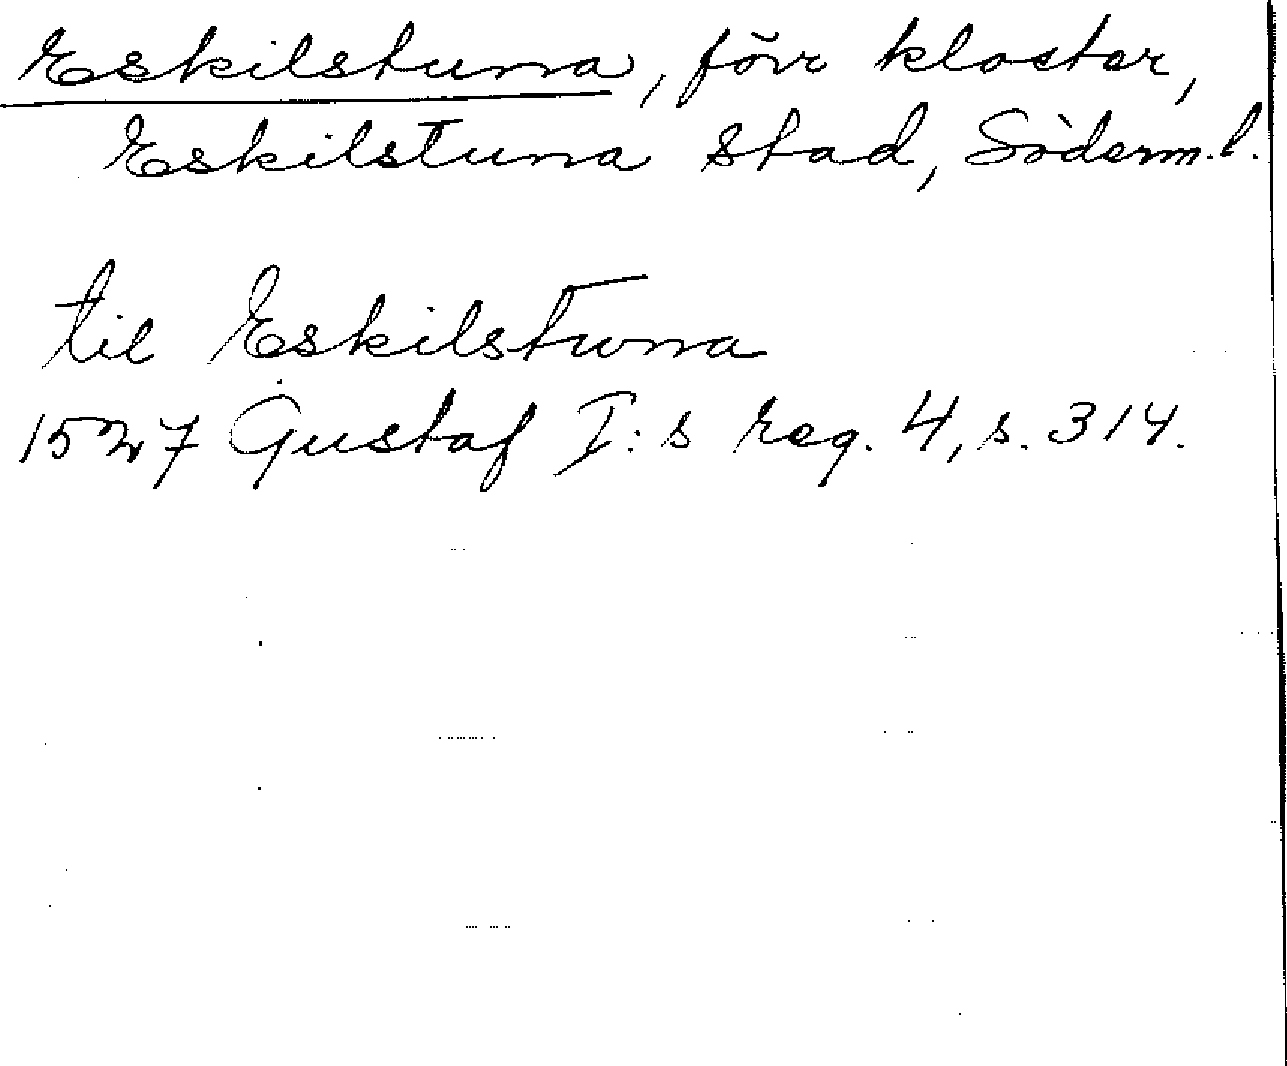 Eskilstuna, förr kloster,
Eskilstuna stad, Söderm.l.
til Eskilstwna
1527 Gustaf I:s reg. 4, s. 314.